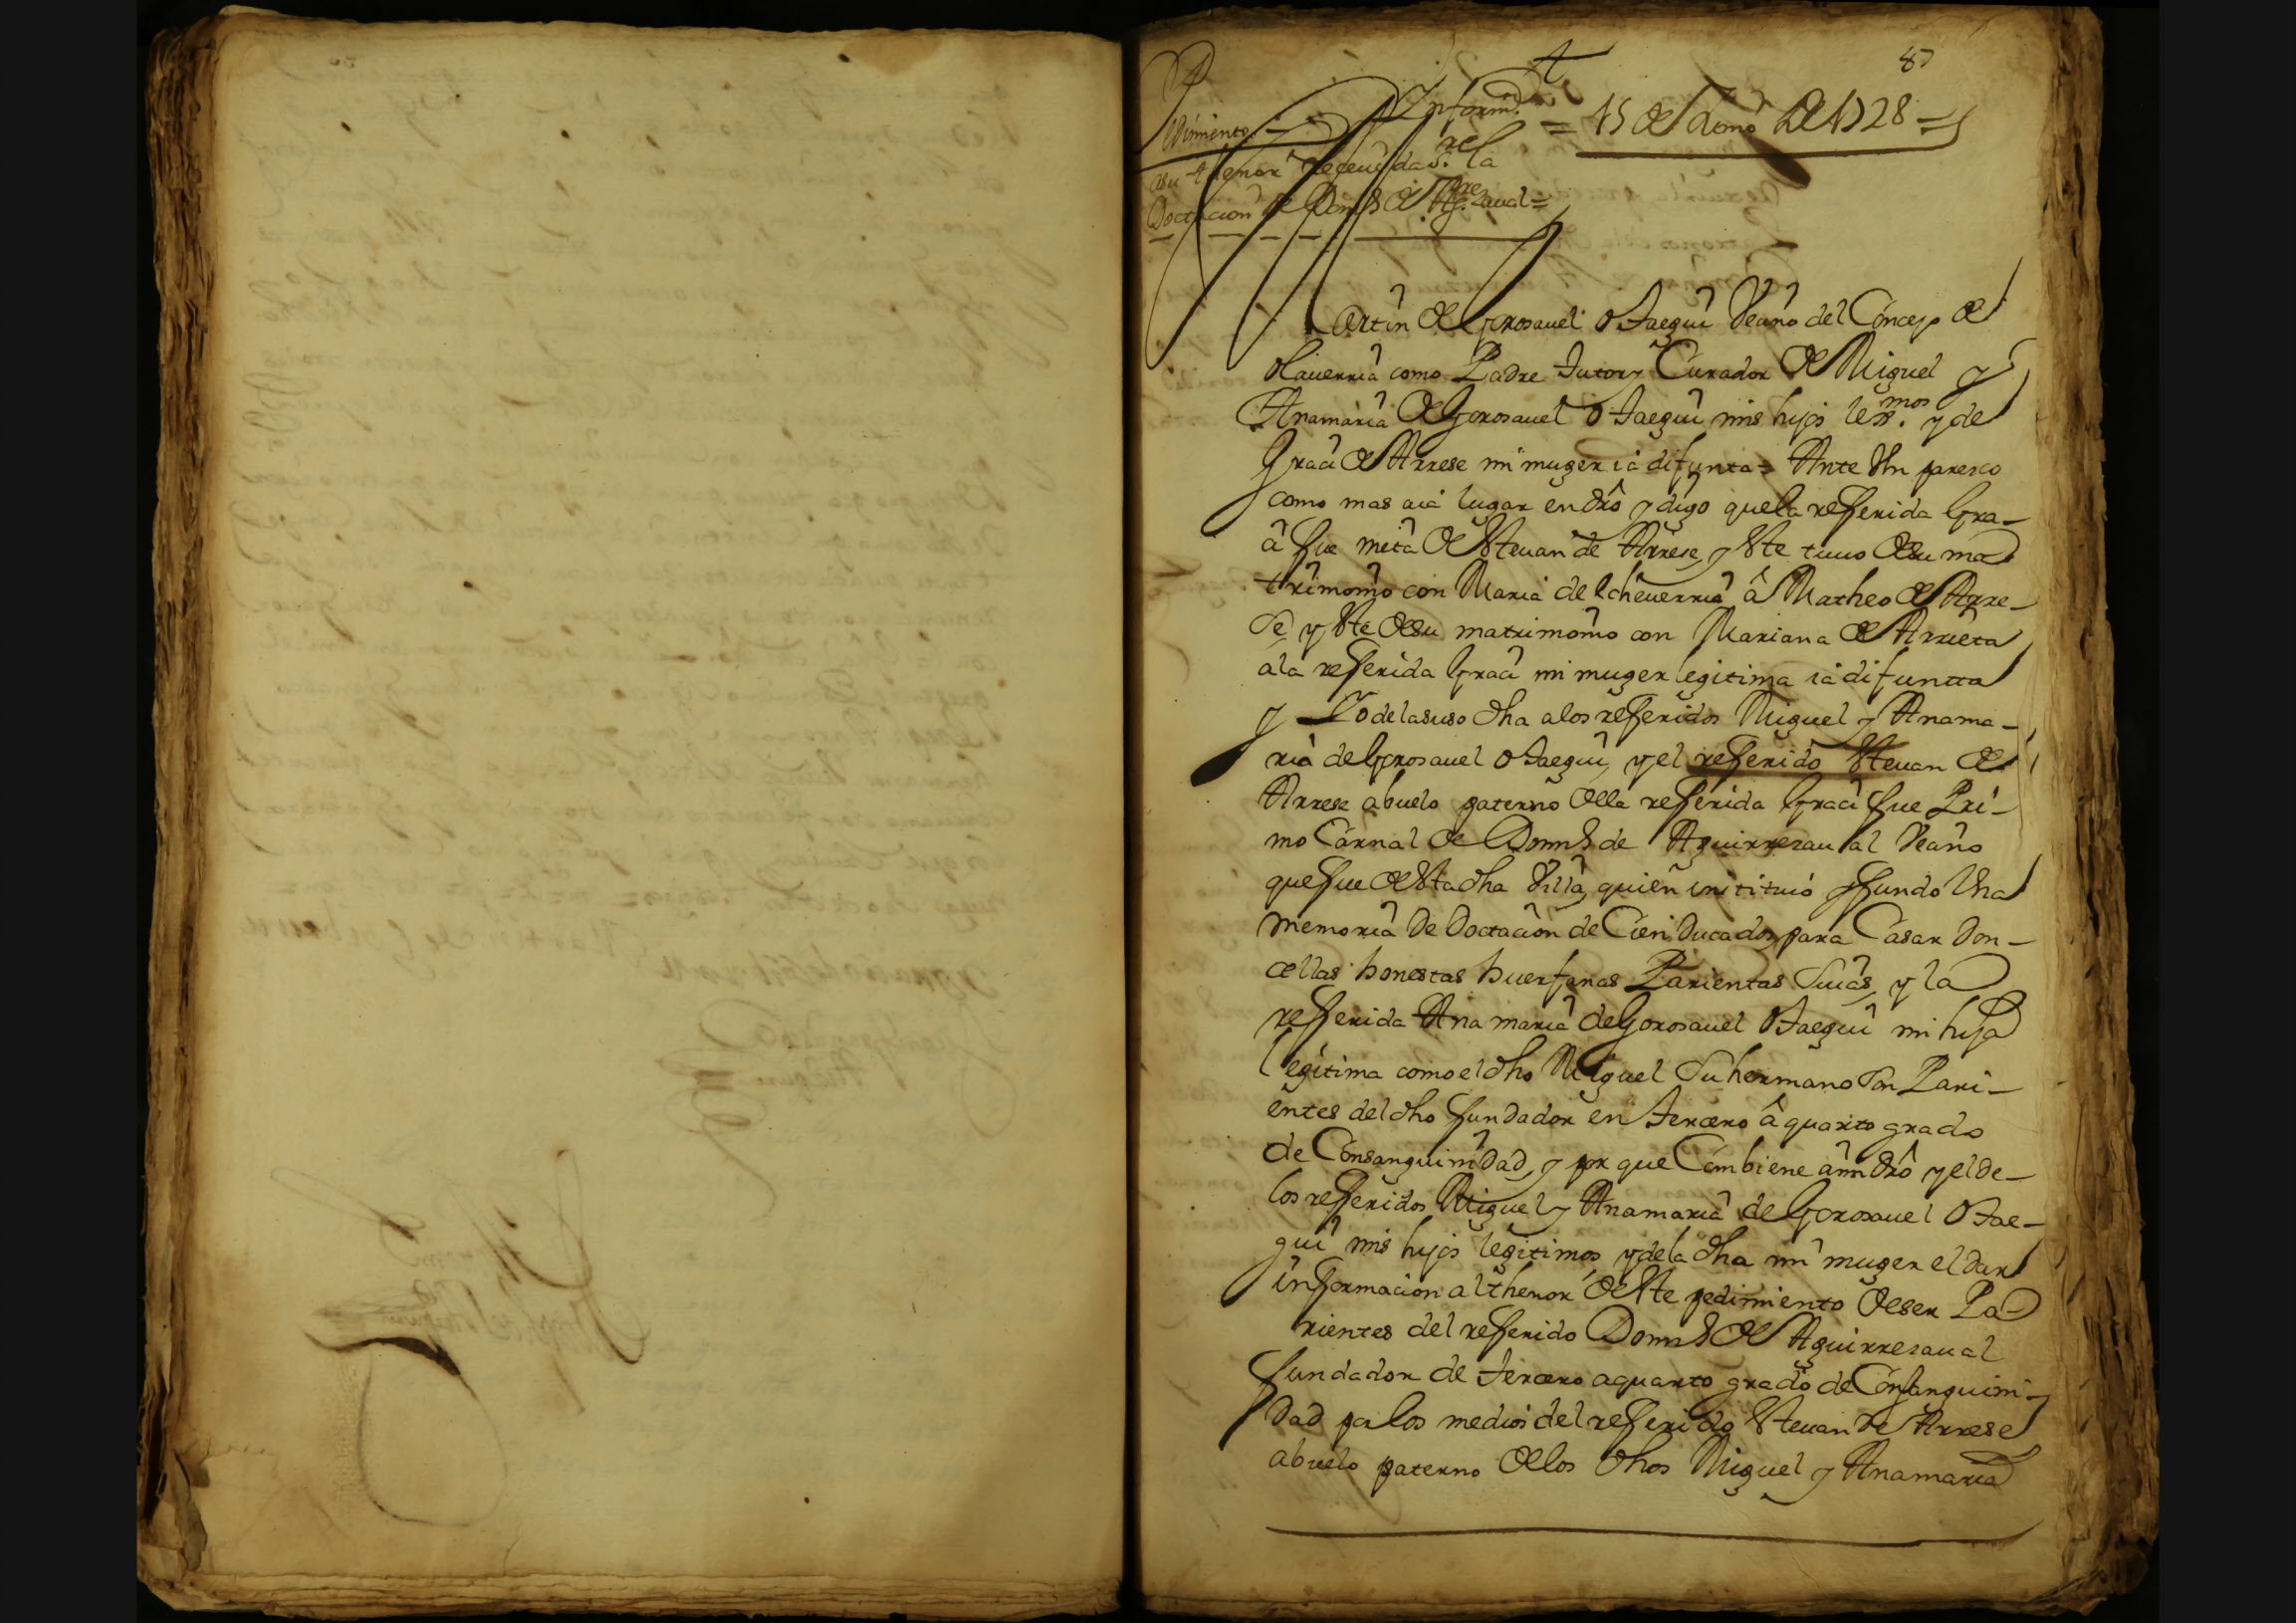 87
Pedimiento = Informn
= 15 de Henô de 1728 =
a su thenor recevida s.re la
Doctacion de Dom.s de Ag.rre zaual =
Martin de Gorosauel Otaegui Veâno del Concejo de
Olauerria como Padre tutor y Curador de Miguel y
Anamaria de Gorosauel Otaegui mis hijos lex.mos y de
Graâ de Arrese mi muger ia difunta = Ante Vm paresco
como mas aia lugar en drô y digo que la refferida Gra-
â fue nieta de Esteuan de Arrese, y Este tuuo de su ma
trimonio con Maria de Echeuerria â Matheo de Arre-
se, y Este de su matrimonio con Mariana de Arrieta
a la refferida Graâ mi muger legitima ia difuntta
y Yo de la suso dha a los refferidos Miguel y Anama-
ria de Gorosauel Otaegui, y el refferido Esteuan de
Arrese abuelo paterno de la refferida Graâ fue Pri-
mo Carnal de Dom.s de Aguirrezaual Veâno
que fue de Esta dha Villa, quien instituio y fundo Vna
memoria de Doctacion de Cien Ducados para Casar Don-
cellas honestas huerfanas Parientas Suias, y la
refferida Ana maria de Gorosauel Otaegui mi hija
legitima como el dho Miguel Su hermano Son Pari-
entes del dho fundador en tercero â quarto grado
de Consanguinidad, y por que Combiene â mi drô y el de-
los refferidos Miguel y Anamaria de Gorosauel Otae-
gui mis hijos legitimos, y de la dha mi muger el dar
informacion al thenor de Este pedimiento de ser Pa-
rientes del refferido Dom.s de Aguirrezaual
fundador de tercero a quarto grado de Consanguini-
dad por los medios del refferido Esteuan de Arrese
abuelo paterno de los dhos Miguel y Anamaria